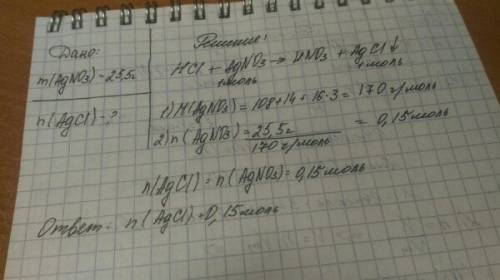 Дано:
m(AgNO3)=25,5г
n(AgCl)-?
Решение:
HCl + AgNO3 → HNO3 + AgCl↓
1моль 1моль
1) M(AgNO3) = 108+14+16·3 = 170 г/моль
2) n(AgNO3) = 25,5г / 170 г/моль = 0,15моль
n(AgCl) = n(AgNO3) = 0,15моль
Ответ: n(AgCl) = 0,15моль